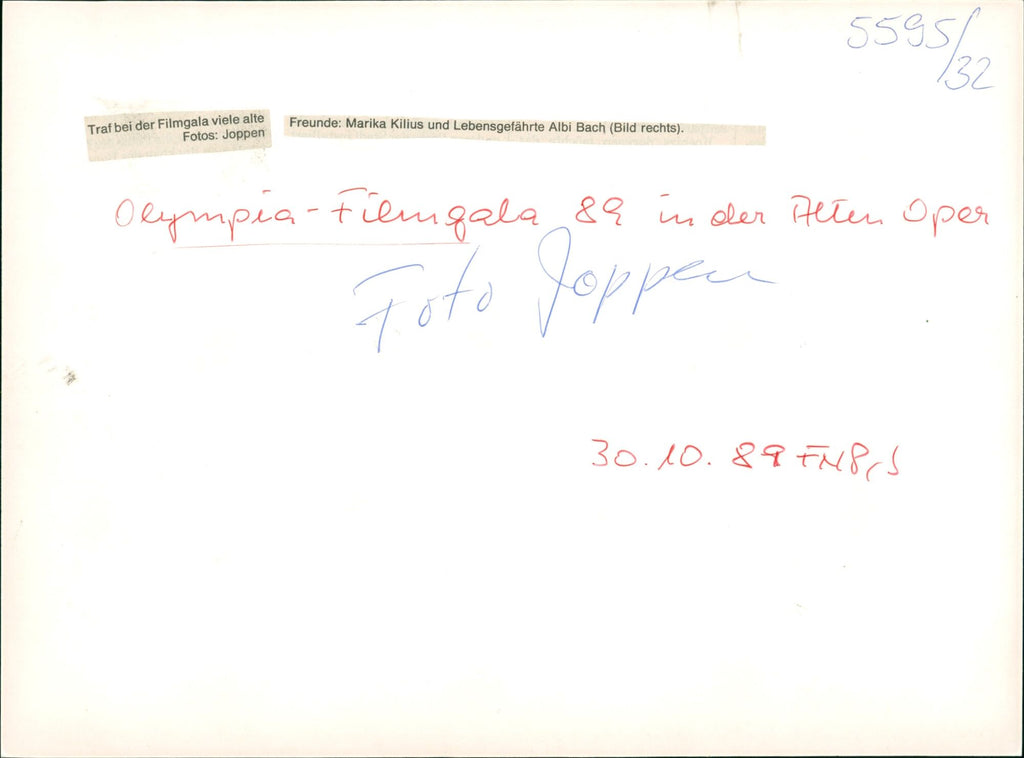 5595/32
Traf bei der Filmgala viele alte
Fotos: Joppen
Freunde: Marika Kilius und Lebensgefährte Albi Bach (Bild rechts).
Olympia-Filmgala 89 in der Alten Oper
Foto Joppen
30.10.89 FNP,S